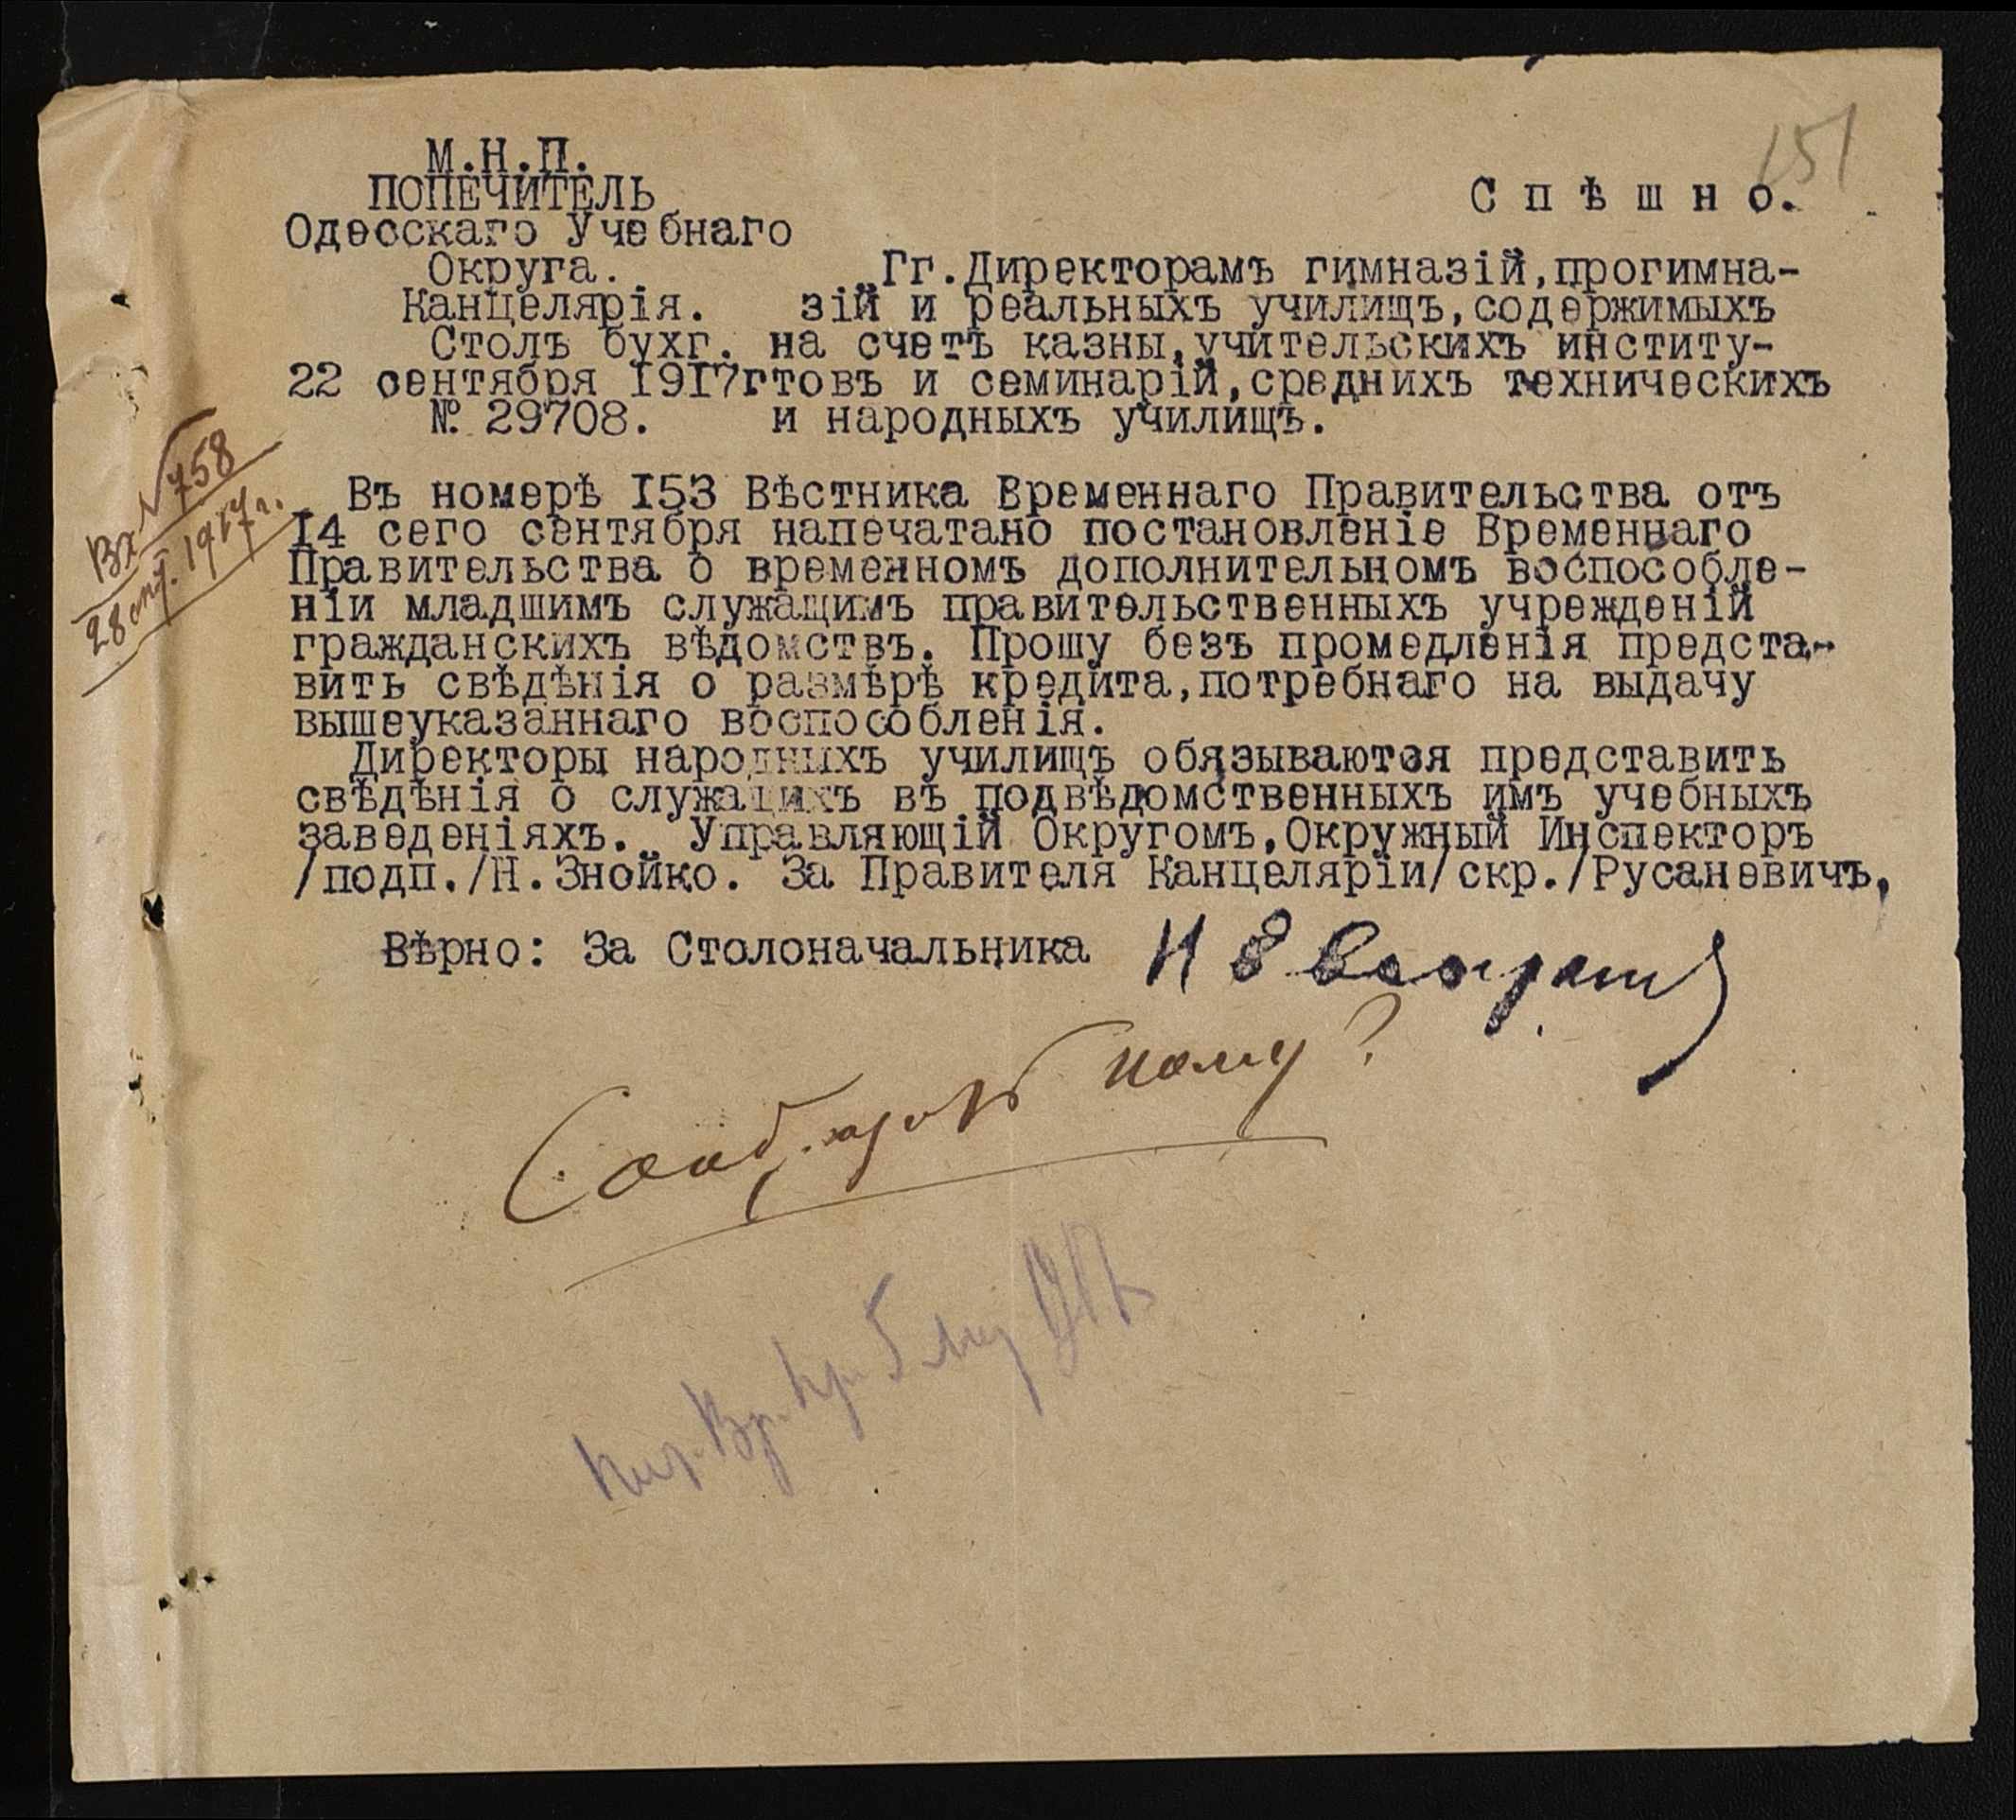 151
М.Н.П.
ПОПЕЧИТЕЛЬ
Одесскаго Учебнаго
Округа.
Канцелярія.
Столъ бухг.
22 сентября 1917г
№ 29708.
Спѣшно.
Гг.Директорамъ гимназій,прогимна-
зій и реальныхъ училищъ,содержимыхъ
на счетъ казны,учительскихъ институ-
товъ и семинарій,среднихъ техническихъ
и народныхъ училищъ.
Вх № 758
28 снт. 1917 г.
Въ номерѣ I53 Вѣстника Временнаго Правительства отъ
I4 сего сентября напечатано постановленіе Временнаго
Правительства о временномъ дополнительномъ воспособле-
ніи младшимъ служащимъ правительственныхъ учрежденій
гражданскихъ вѣдомствъ. Прошу безъ промедленія предста-
вить свѣдѣнія о размѣрѣ кредита,потребнаго на выдачу
вышеуказаннаго воспособленія.
Директоры народныхъ училищъ обязываются представить
свѣдѣнія о служащихъ въ подвѣдомственныхъ имъ учебныхъ
заведеніяхъ. Управляющій Округомъ,Окружный Инспекторъ
/подп./Н.Знойко. За Правителя Канцеляріи/скр./Русаневичъ,
Вѣрно: За Столоначальника
кому?